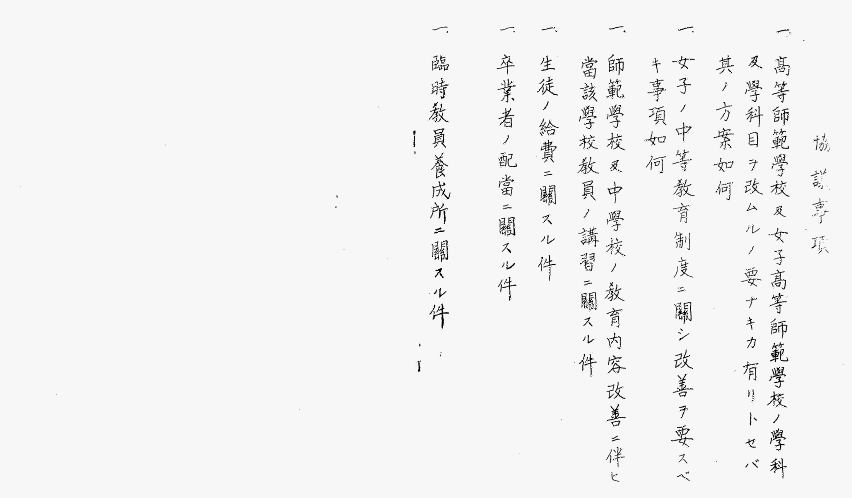 協議事項
一、高等師範學校及女子高等師範學校ノ學科
及學科目ヲ改ムルノ要ナキカ有リトセバ
其ノ方案如何
一、女子ノ中等教育制度ニ關シ改善ヲ要スベ
キ事項如何
一、師範學校及中學校ノ教育内容改善ニ伴ヒ
當該學校教員ノ講習ニ關スル件
一、生徒ノ給費ニ關スル件
一、卒業者ノ配當ニ關スル件
一、臨時教員養成所ニ關スル件